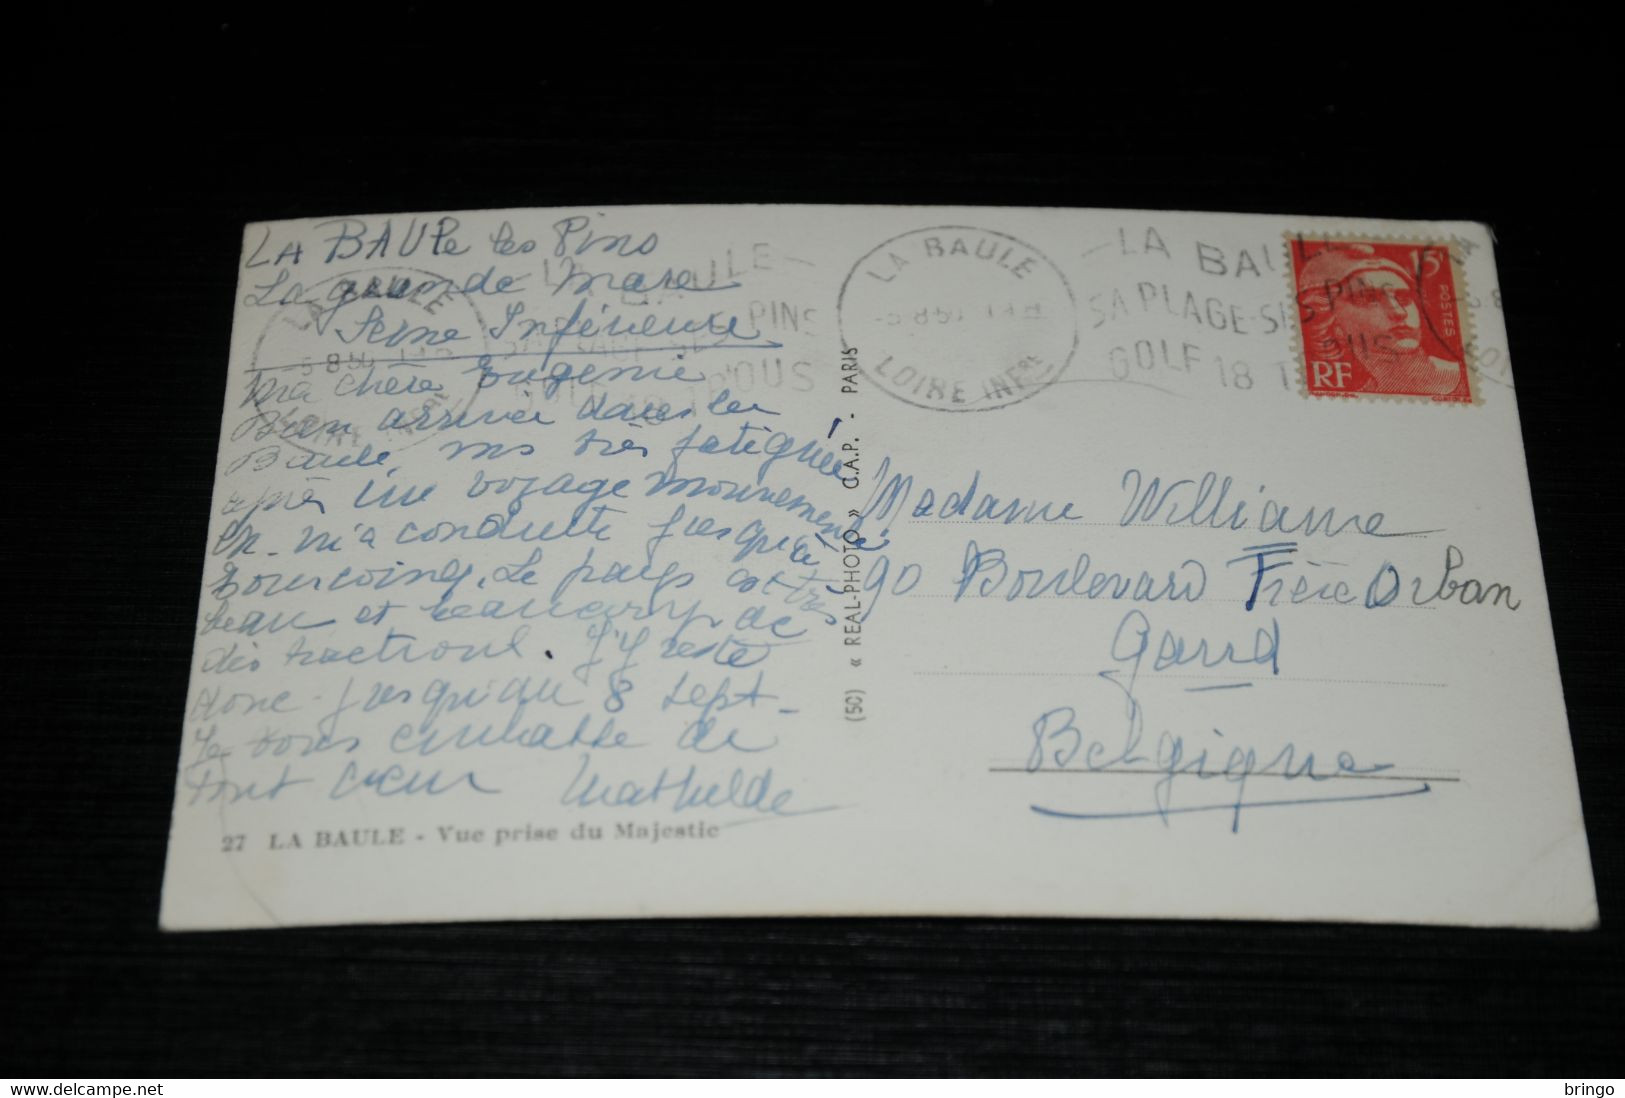 LA BAUle les Pins
La grande mare
Seine Inférieure
Ma chère Eugénie
Bien arrivée dans la
Baule, très fatiguée
après un voyage mouvementé.
m'a conduite jusqu'à
Tourcoing. Le pays est très
beau et beaucoup de
distractions. J'y reste
donc jusqu'au 8 sept.
Je vous embrasse de
tout cœur Mathilde
27 LA BAULE - Vue prise du Majestic
(50) « REAL-PHOTO » C.A.P. - PARIS
LA BAULE
LOIRE INFRE
LA BAULE
SA PLAGE-SES PINS
GOLF 18 T
15F
POSTES
RF
Madame Williame
90 Boulevard Frère Orban
Gand
Belgique
bringo